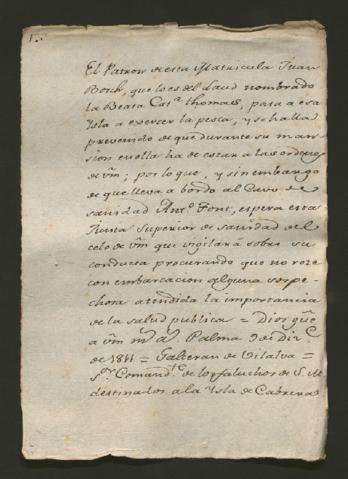 El Patron de esta Matricula Juan
Bosch, que lo es del Laud nombrado
la Beata Cat.ª Thomas, pasa a esa
Isla a exercer la pesca, y se halla
prevenido de que durante su man-
sion en ella ha de estar a las ordenes
de Vm; por lo que, y sin embargo
de que lleva a bordo al Cavo de
sanidad Ant.º Font, espera esta
Junta Superior de sanidad del
celo de Vm que vigilará sobre su
conducta procurando que no roze
con embarcacion alguna sospe-
chosa atendida la importancia
de la salud publica = Dios gũe
a Vm m.ª a.ˢ Palma 9 de Dic.ᵉ
de 1811 = Galceran de Vilalva =
S.ʳ Comand.ᵗᵉ de los faluchos de S. M
destinados a la Isla de Cabrera